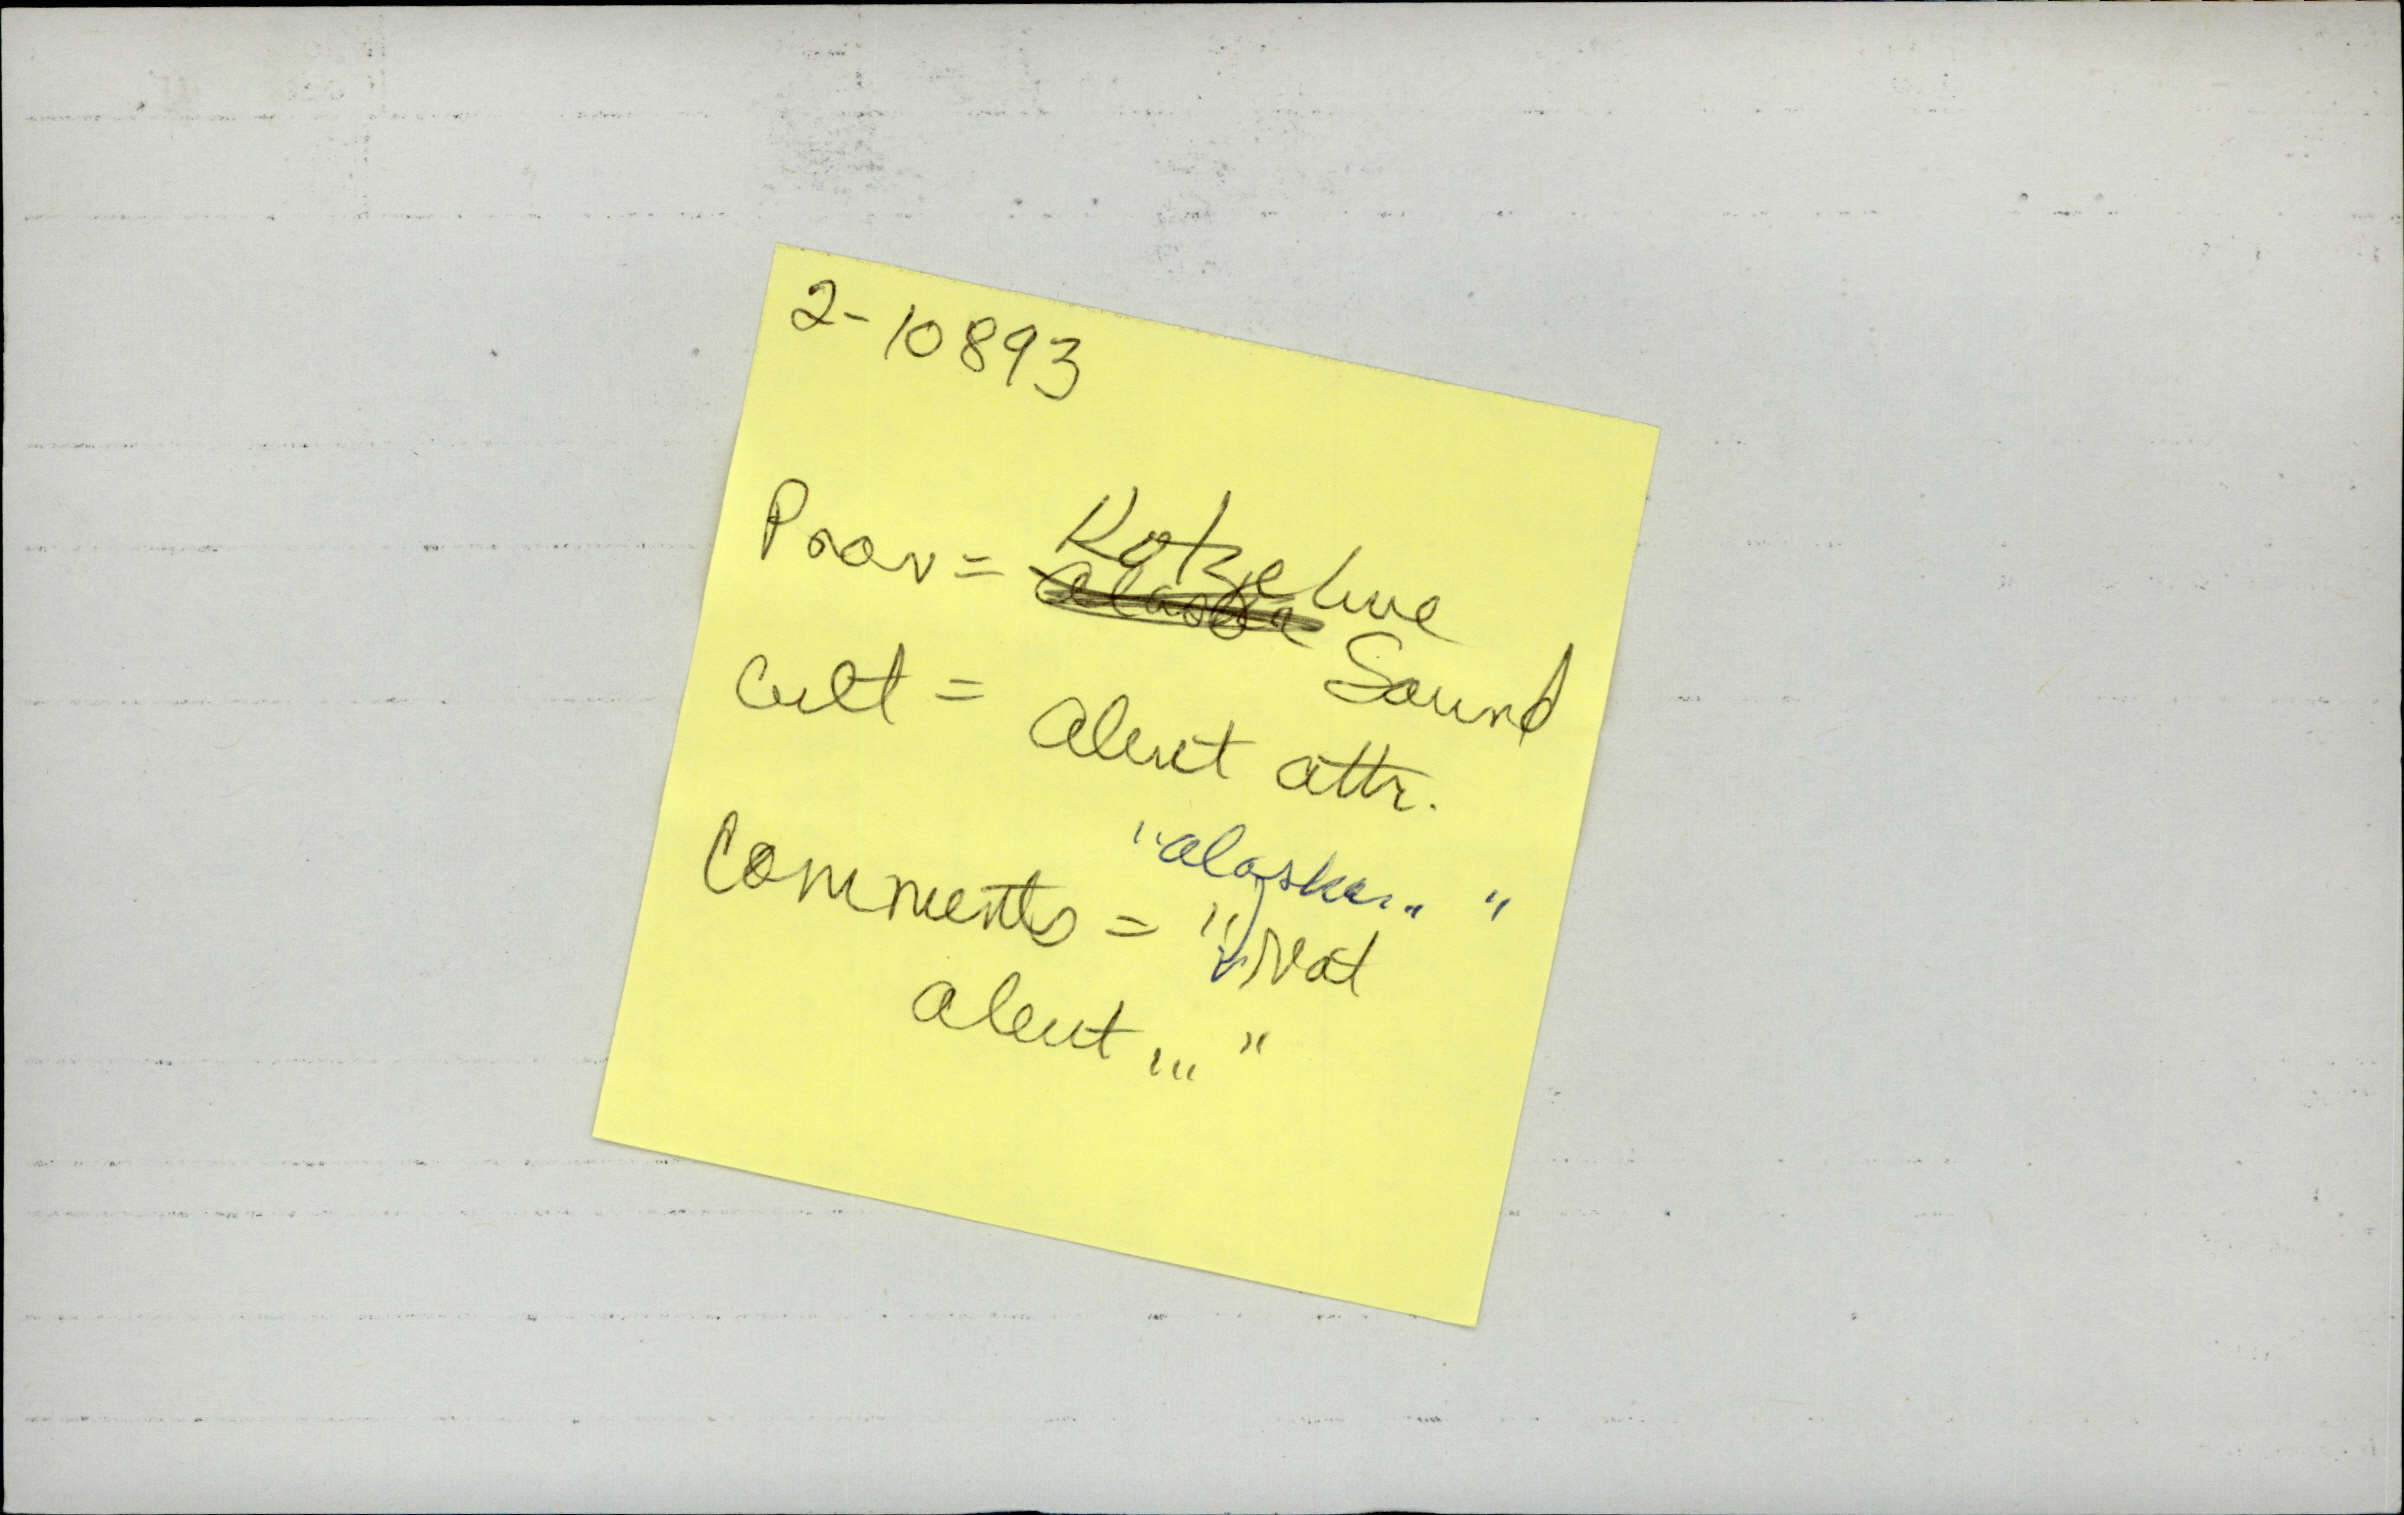 2-10893
Prov = Kotzebue
alaska Sound
Cult = aleut attr.
"alaska... "
Comments = "Not
aleut ... "